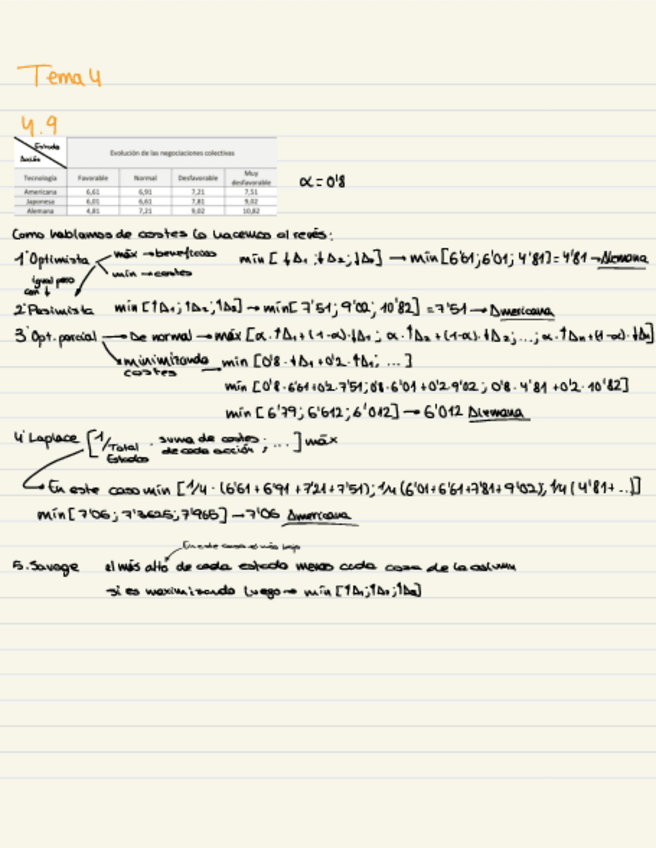 Tema 4
4.9
Estado
Acción
Evolución de las negociaciones colectivas
Tecnología Favorable Normal Desfavorable Muy desfavorable
Americana 6,61 6,91 7,21 7,51
Japonesa 6,01 6,61 7,81 9,02
Alemana 4,81 7,21 9,02 10,82
α = 0'8
Como hablamos de costes lo hacemos al revés:
1º Optimista máx → beneficios
mín → costes
mín [↓A₁; ↓A₂; ↓A₃] → mín [6'61; 6'01; 4'81] = 4'81 → Alemana
igual pero con ↓
2º Pesimista mín [↑A₁; ↑A₂; ↑A₃] → mín [7'51; 9'02; 10'82] = 7'51 → Americana
3º Opt. parcial → De normal → máx [α·↑A₁+(1-α)·↓A₁; α·↑A₂+(1-α)·↓A₂; ...; α·↑Aₙ+(1-α)·↓Aₙ]
minimizando costes → mín [0'8·↓A₁+0'2·↑A₁; ...]
mín [0'8·6'61+0'2·7'51; 0'8·6'01+0'2·9'02; 0'8·4'81+0'2·10'82]
mín [6'79; 6'612; 6'012] → 6'012 Alemana
4º Laplace [1/Total Estados · suma de costes de cada acción; ...] máx
En este caso mín [1/4·(6'61+6'91+7'21+7'51); 1/4(6'01+6'61+7'81+9'02); 1/4(4'81+...)]
mín [7'06; 7'3625; 7'965] → 7'06 Americana
En este caso el más bajo
5. Savage el más alto de cada estado menos cada cosa de la column
si es maximizando luego → mín [↑A₁; ↑A₂; ↑A₃]